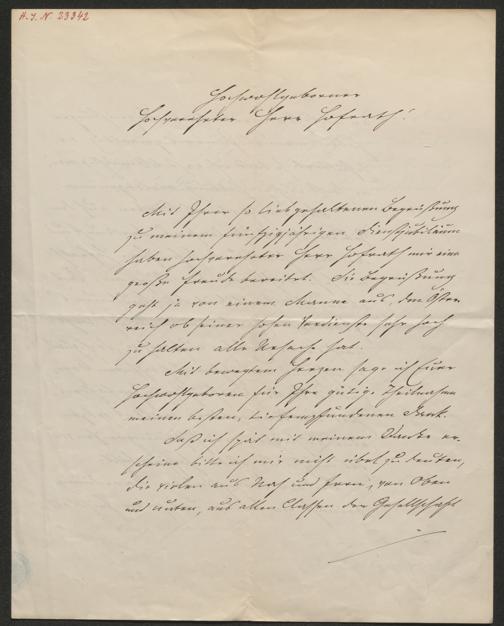 H. I. N. 23342
Hochwohlgeborner
Hochverehrter Herr Hofrath!
Mit Ihrer so liebgehaltenen Begrüßung
zu meinem fünfzigjährigen Dienstjubiläum
haben hochverehrter Herr Hofrath mir eine
große Freude bereitet. Die Begrüßung
geht ja von einem Manne aus, den Öster
reich ob seiner hohen Verdienste sehr hoch
zu halten alle Ursache hat.
Mit bewegtem Herzen sage ich Euer
Hochwohlgeboren für Ihre gütige Theilnahme
meinen besten, tiefempfundenen Dank.
Daß ich spät mit meinem Danke er
scheine bitte ich mir nicht übel zu deuten,
die vielen aus Nah und Fern, von Oben
und Unten, aus allen Classen der Gesellschaft